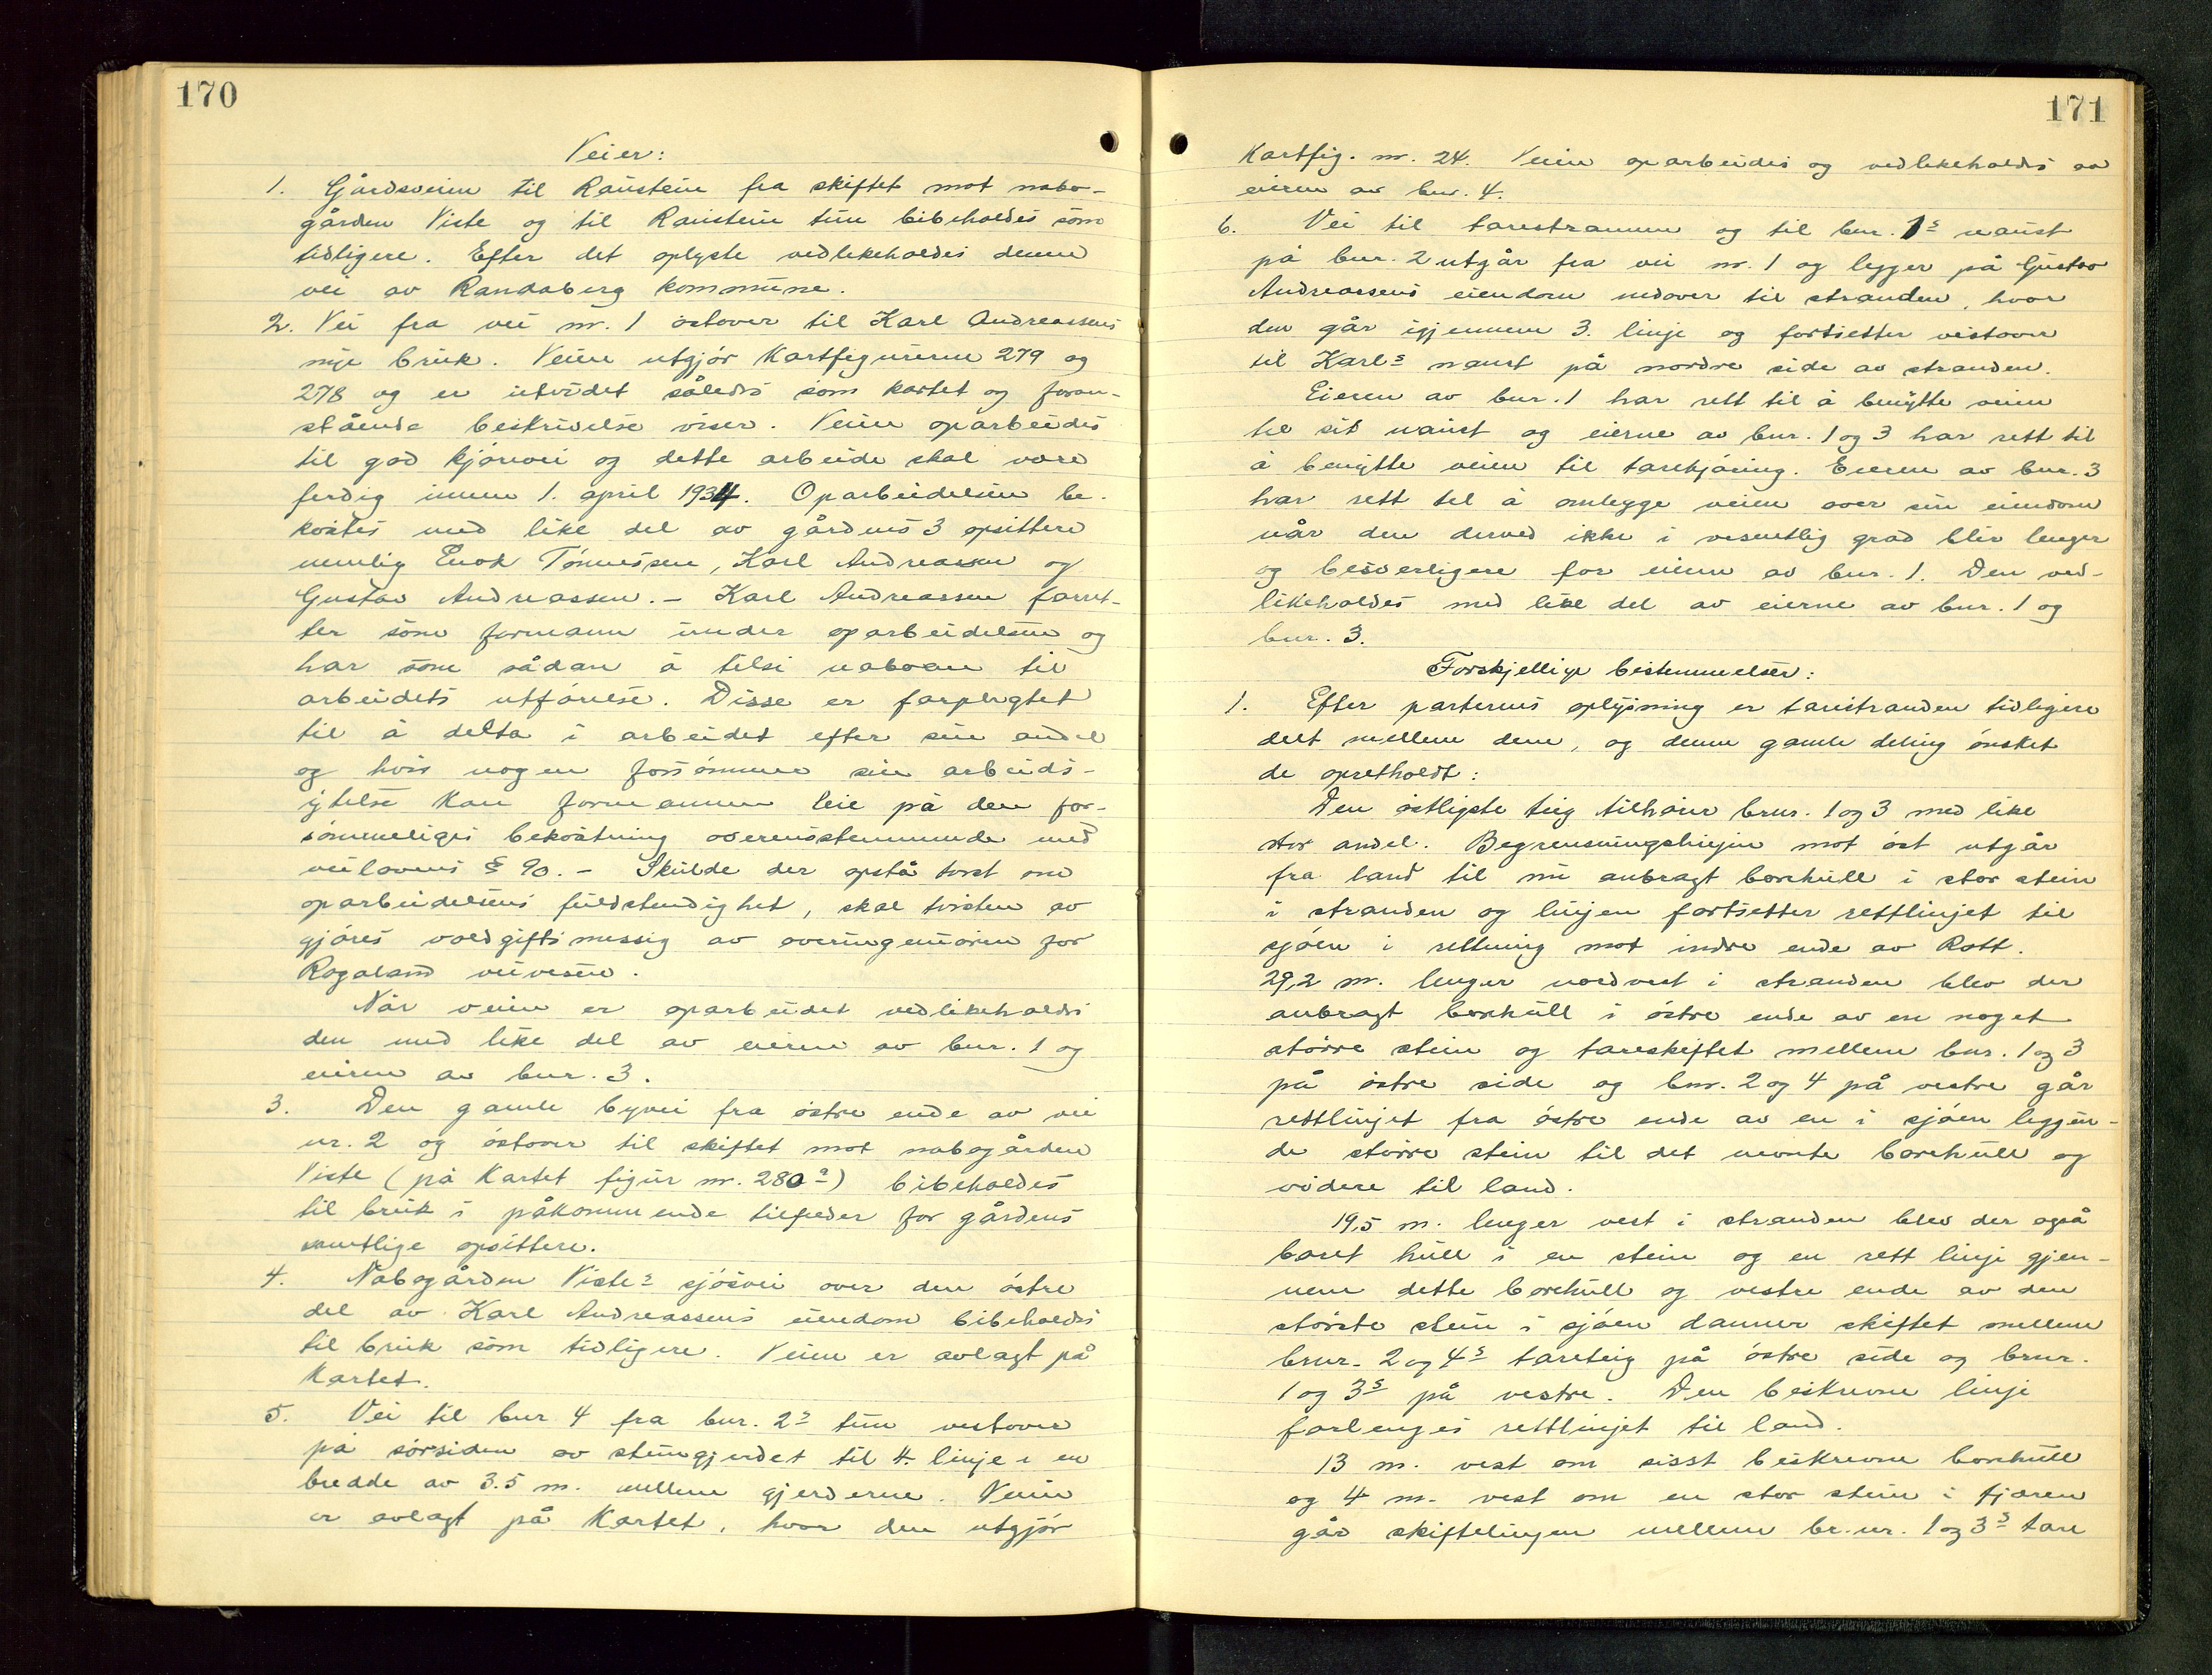 170
Veier:
1. Gårdsveien til Raustein fra skiftet mot nabo-
gården Viste og til Raustein tun bibeholdes som
tidligere. Efter det oplyste vedlikeholdes denne
vei av Randaberg kommune.
2. Vei fra vei nr. 1 østover til Karl Andreassens
nye bruk. Veien utgjør Kartfigurerne 279 og
278 og er utvidet således som kartet og foran-
stående beskrivelse viser. Veien oparbeides
til god kjørevei og dette arbeide skal være
ferdig innen 1. april 1934. Oparbeidelsen be-
kostes med like del av gårdens 3 opsittere
nemlig Enok Tønnessen, Karl Andreassen og
Gustav Andreassen. – Karl Andreassen forret-
ter som formann under oparbeidelsen og
har som sådan å tilsi naboene til
arbeidets utførelse. Disse er forpligtet
til å delta i arbeidet efter sin andel
og hvis nogen forsømmer sin arbeids-
ytelse kan formannen leie på den for-
sømmeliges bekostning overensstemmende med
veilovens § 90. – Skulde der opstå tvist om
oparbeidelsens fuldstendighet, skal tvisten av
gjøres voldgiftsmessig av overingeniøren for
Rogaland veivesen.
Når veien er oparbeidet vedlikeholdes
den med like del av eieren av bnr. 1 og
eieren av bnr. 3.
3. Den gamle byvei fra østre ende av vei
nr. 2 og østover til skiftet mot nabogården
Viste (på Kartet figur nr. 280a) bibeholdes
til bruk i påkommende tilfelder for gårdens
samtlige opsittere.
4. Nabogården Viste's sjøsvei over den østre
del av Karl Andreassens eiendom bibeholdes
til bruk som tidligere. Veien er avlagt på
Kartet.
5. Vei til bnr 4 fra bnr. 2s tun vestover
på sørsiden av steingjerdet til 4 linje i en
bredde av 3.5 m. mellem gjerderne. Veien
er avlagt på Kartet, hvor den utgjør
171
Kartfig. nr. 24. Veien oparbeides og vedlikeholdes av
eieren av bnr. 4.
6. Vei til tarestrannen og til bnr. 1s naust
på bnr. 2 utgår fra vei nr. 1 og legger på Gustav
Andreassens eiendom nedover til stranden, hvor
den går igjennem 3. linje og fortsetter vestover
til Karls naust på nordre side av stranden.
Eieren av bnr. 1 har rett til å benytte veien
til sit naust og eierne av bnr. 1 og 3 har rett til
å benytte veien til tarekjøring. Eieren av bnr. 3
har rett til å omlegge veien over sin eiendom
når den derved ikke i vesentlig grad blir lenger
og besverligere for eieren av bnr. 1. Den ved-
likeholdes med like del av eierne av bnr. 1 og
bnr. 3.
Forskjellige bestemmelser:
1. Efter parternes oplysning er tarestranden tidligere
delt mellem dem, og denne gamle deling ønsket
de opretholdt:
Den østligste teig tilhører brnr. 1 og 3 med like
stor andel. Begrensningslinjen mot øst utgår
fra land til nu anbragt borehull i stor stein
i stranden og linjen fortsetter rettlinjet til
sjøen i rettning mot indre ende av Rott.
29,2 m. lenger nordvest i stranden blev der
anbragt borehull i østre ende av en noget
større stein og tareskiftet mellem bnr. 1 og 3
på østre side og bnr. 2 og 4 på vestre går
rettlinjet fra østre ende av en i sjøen leggen-
de større stein til det nevnte borehull og
videre til land.
19,5 m. lenger vest i stranden blev der også
boret hull i en stein og en rett linje gjen-
nem dette borehull og vestre ende av den
største stein i sjøen danner skiftet mellem
brnr. 2 og 4s tareteig på østre side og brnr.
1 og 3s på vestre. Den beskrevne linje
forlenges rettlinjet til land.
13 m. vest om sisst beskrevne borehull
og 4 m. vest om en stor stein i fjæren
går skiftelinjen mellem br.nr. 1 og 3s tare